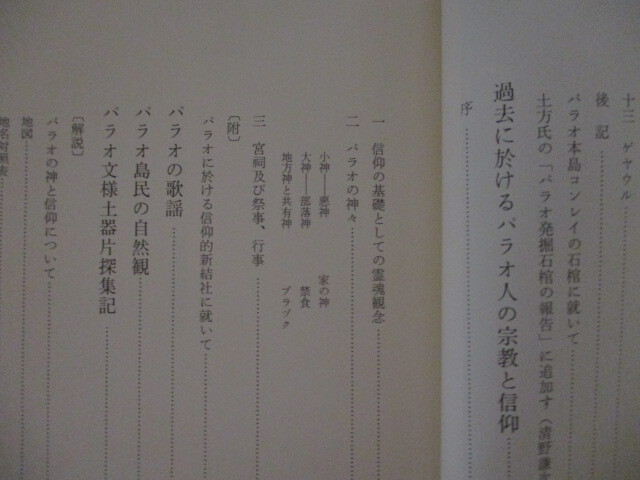 十三 ゲヤウル
後記
パラオ本島コンレイの石棺に就いて
土方氏の「パラオ発掘石棺の報告」に追加す(清野謙次
過去に於けるパラオ人の宗教と信仰
序
一 信仰の基礎としての霊魂観念
二 パラオの神々
小神──悪神 家の神
大神──部落神 禁食
地方神と共有神 ブラブク
三 宮祠及び祭事、行事
〔附〕
パラオに於ける信仰的新結社に就いて
パラオの歌謡
パラオ島民の自然観
パラオ文様土器片探集記
〔解説〕
パラオの神と信仰について
地図
地名対照表